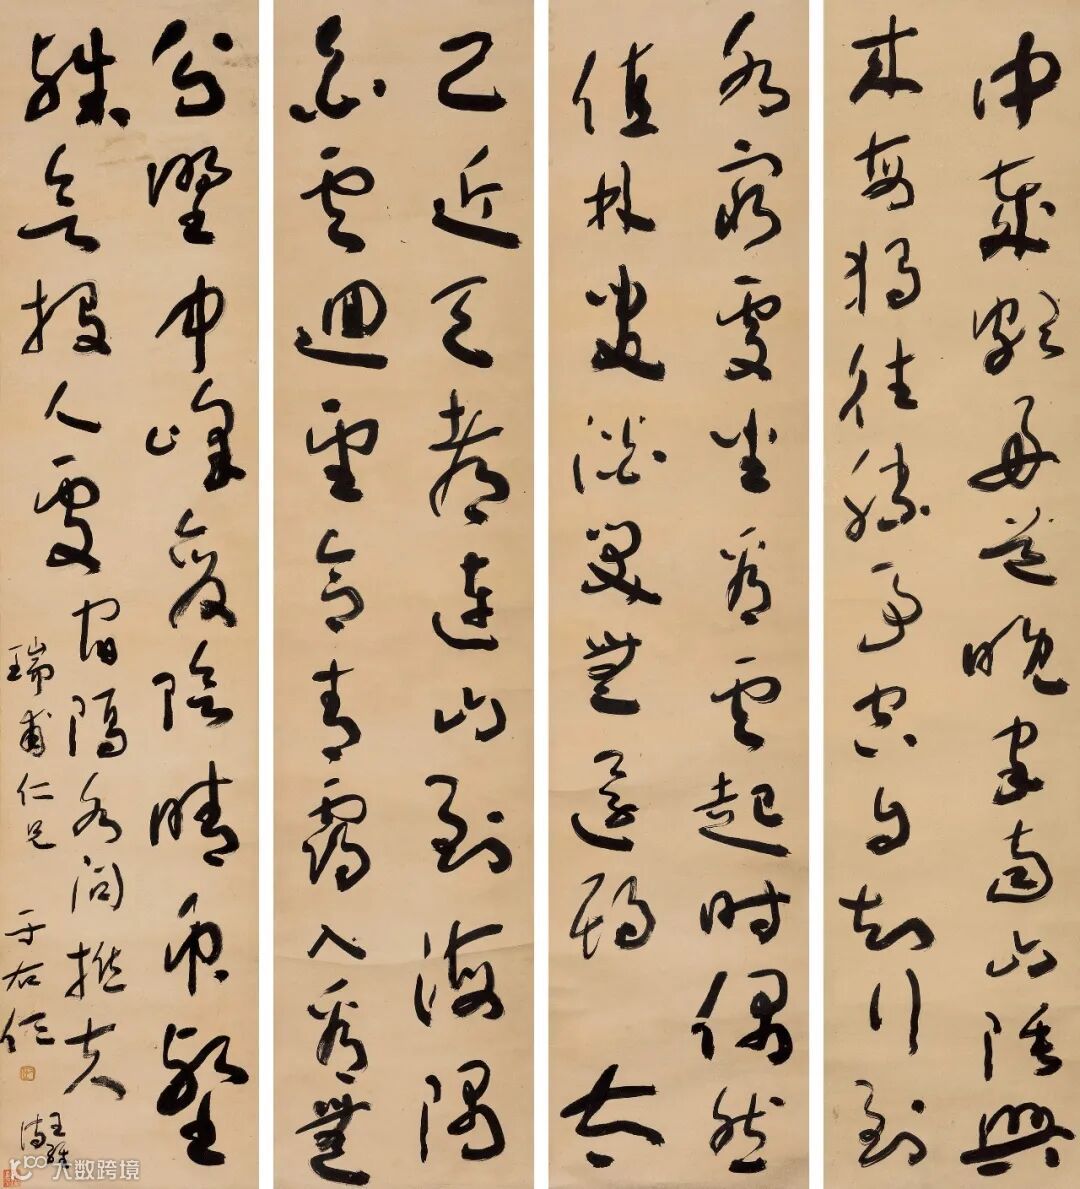 中歲頗好道晚家南山陲興
來每獨往勝事空自知行到
水窮處坐看雲起時偶然
值林叟談笑無還期太
乙近天都連山到海隅
白雲迴望合青靄入看無
分野中峰變陰晴眾壑
殊欲投人處宿隔水問樵夫
王維詩
瑞甫仁兄 于右任
大数跨境